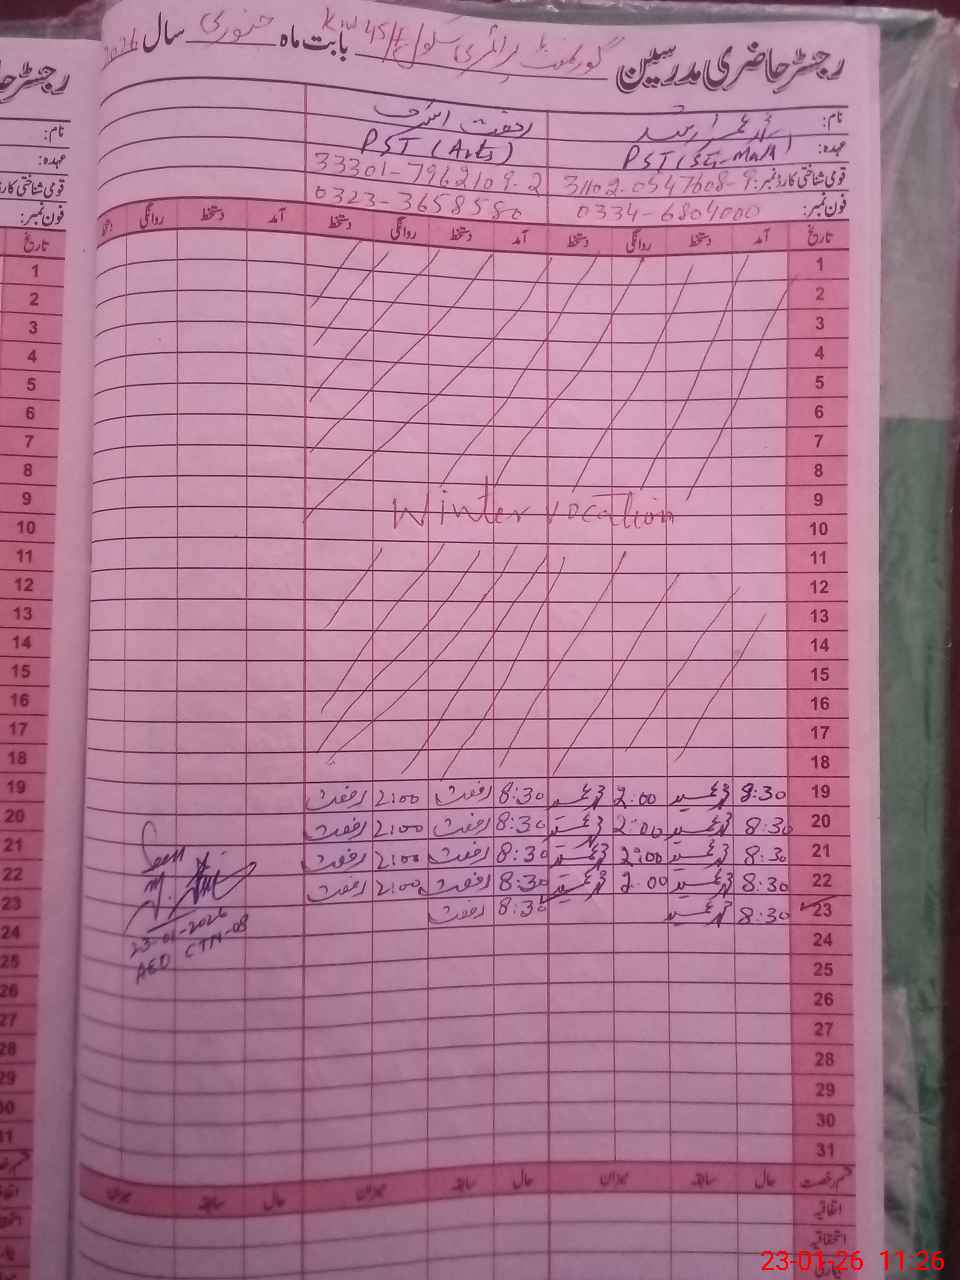 رجسٹر حاضری مدرسین گورنمنٹ پرائمری سکول بابت ماہ جنوری سال 2026
نام: رفعت اشرف
عہدہ: PST (Sci-Math) PST (Arts)
قومی شناختی کارڈ نمبر: 31102-0547608-9 33301-7962109-2
فون نمبر: 0334-6804000 0323-3658580
تاریخ آمد دستخط روانگی دستخط آمد دستخط روانگی دستخط آمد دستخط روانگی
1
2
3
4
5
6
7
8
9 Winter vocation
10
11
12
13
14
15
16
17
18
19 8:30 2:00 8:30 رفعت 2:00 رفعت
20 8:30 2:00 8:30 رفعت 2:00 رفعت
21 8:30 2:00 8:30 رفعت 2:00 رفعت
22 8:30 2:00 8:30 رفعت 2:00 رفعت
23 8:30 8:30 رفعت
Seen
23-01-2026
AEO CTN-08
24
25
26
27
28
29
30
31
قسم رخصت حال سابقہ میزان حال سابقہ میزان حال سابقہ میزان
اتفاقیہ
استحقاقیہ
رجسٹر حا
نام:
عہدہ:
قومی شناختی کارڈ
فون نمبر:
تاریخ
1
2
3
4
5
6
7
8
9
10
11
12
13
14
15
16
17
18
19
20
21
22
23
24
25
26
27
28
29
30
31
23-01-26 11:26